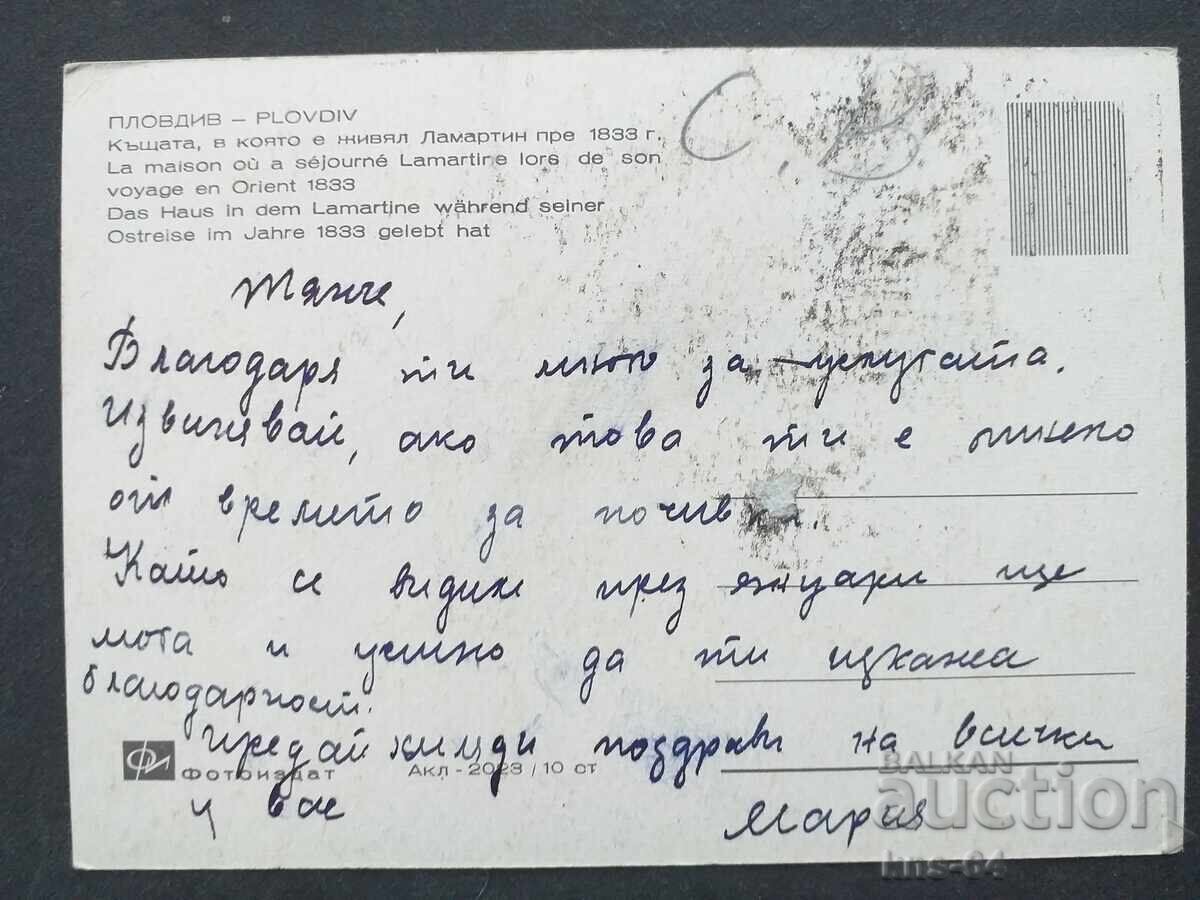 ПЛОВДИВ – PLOVDIV
Къщата, в която е живял Ламартин пре 1833 г.
La maison où a séjourné Lamartine lors de son
voyage en Orient 1833
Das Haus in dem Lamartine während seiner
Ostreise im Jahre 1833 gelebt hat
Тянче,
Благодаря ти много за услугата.
Извинявай, ако това ти е отнело
от времето за почивка.
Като се видим през януари ще
мога и устно да ти изкажа
благодарност.
Предай хиляди поздрави на всички
у вас
Мария
Фотоиздат Акл-2023/10 ст
BALKAN
auction
kns-64